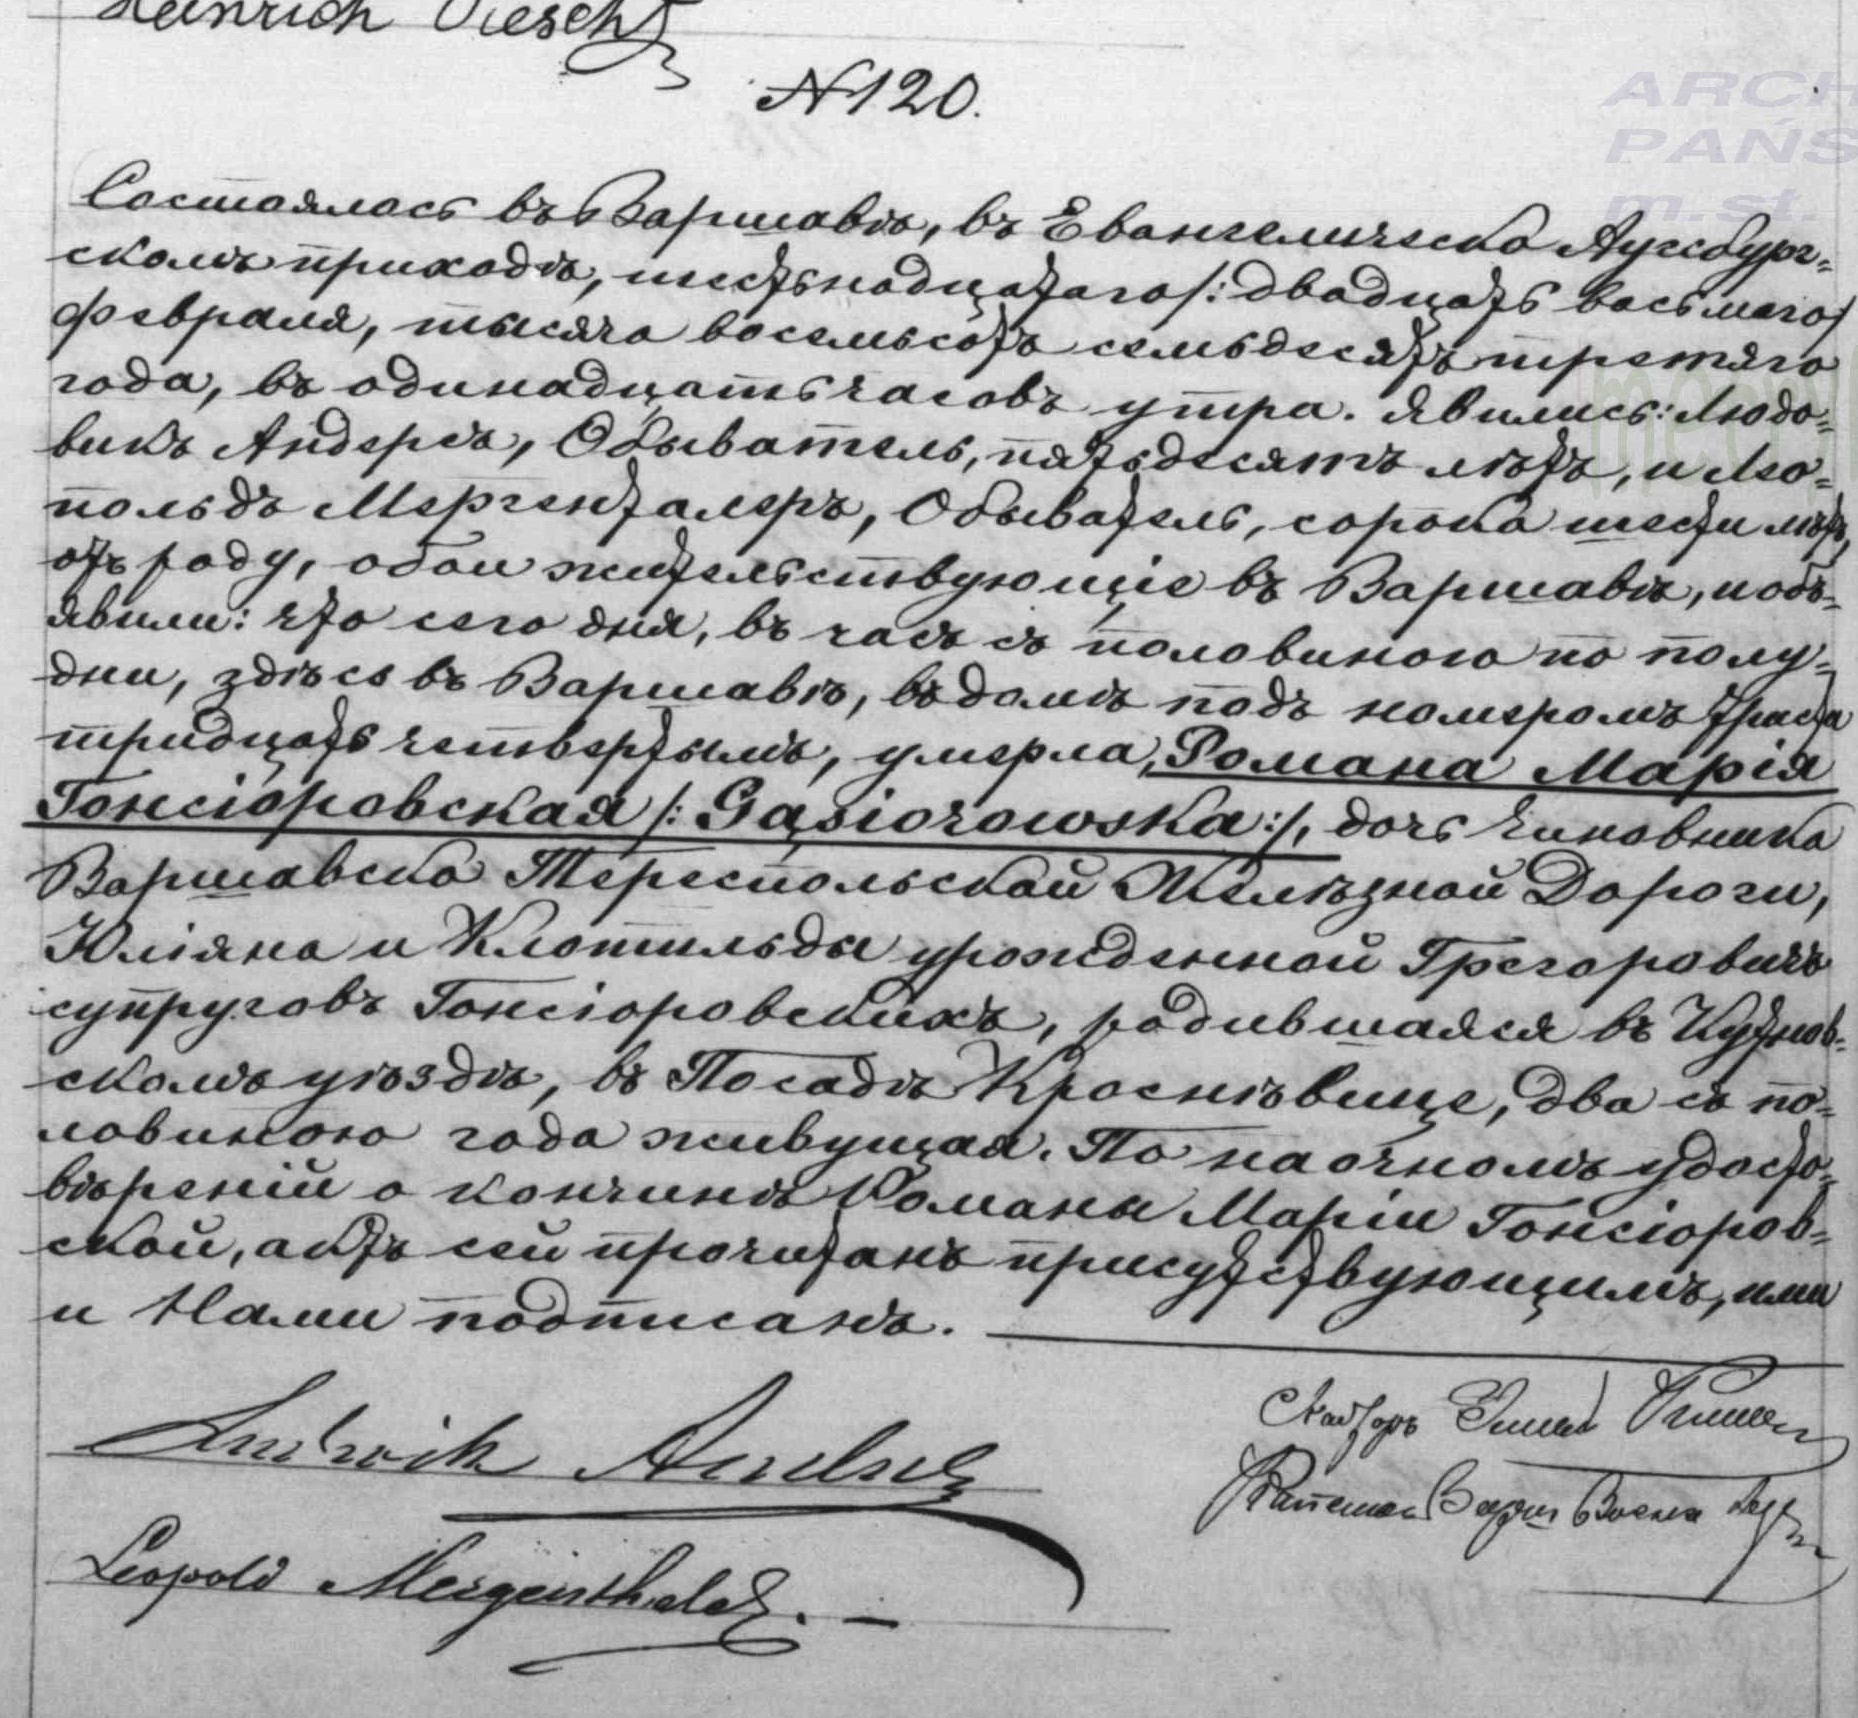 Heinrich
N 120.
ARCH
PAŃS
m. st.
Состоялось въ Варшавѣ, въ Евангелическо Аугсбург=
скомъ приходѣ, шестьнадцатаго /: двадцать восьмаго /
Февраля, тысяча восемьсотъ семьдесятъ третяго
года, въ одинадцать часовъ утра. Явились: Людо=
викъ Андерсъ, Обыватель, пятьдесятъ лѣтъ, и Лео=
польдъ Мергенталеръ, Обыватель, сорока шести лѣтъ,
отъ роду, обои жительствующіе въ Варшавѣ, и объ=
явили: что сего дня, въ часъ съ половиною по полу=
дни, здѣсь въ Варшавѣ, въ домѣ подъ номеромъ триста
тридцать четвертымъ, умерла, Романа Марія
Гонсіоровская /: Gąsiorowska :/, дочь чиновника
Варшавско Тереспольской Желѣзной Дороги,
Юліяна и Клотильды урожденной Грегоровичъ
супруговъ Гонсіоровскихъ, родившаяся въ Кутнов=
скомъ уѣздѣ, въ Посадѣ Кроснѣвице, два съ по=
ловиною года живущая. По наочномъ удосто=
вѣреній о кончинѣ Романы Маріи Гонсіоров=
ской, актъ сей прочитанъ присутствующимъ, ими
и Нами подписанъ.
Ludwik Anders
Leopold Mergenthaler. —